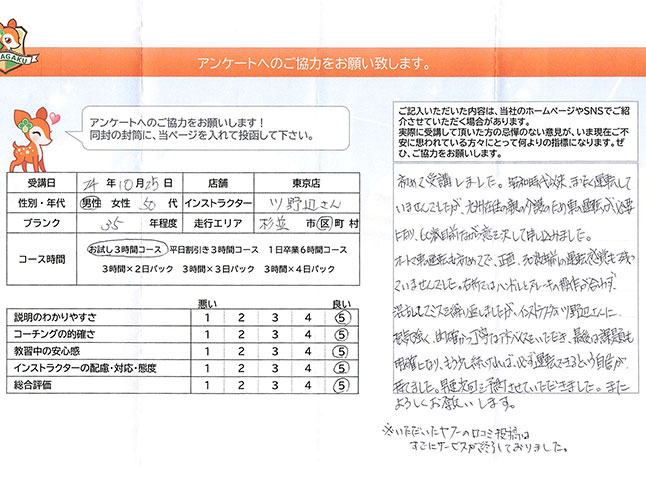 AGAKU
アンケートへのご協力をお願い致します。
アンケートへのご協力をお願いします!
同封の封筒に、当ページを入れて投函して下さい。
ご記入いただいた内容は、当社のホームページやSNSでご紹
介させていただく場合があります。
実際に受講して頂いた方の忌憚のない意見が、いま現在ご不
安に思われている方々にとって何よりの指標になります。ぜ
ひ、ご協力をお願いします。
受講日 24年10月25日 店舗 東京店
性別・年代 男性 女性 50代 インストラクター ツノ辺さん
ブランク 35年程度 走行エリア 杉並 市 区 町 村
コース時間 お試し3時間コース 平日割引き3時間コース 1日卒業6時間コース
3時間×2日パック 3時間×3日パック 3時間×4日パック
悪い 良い
説明のわかりやすさ 1 2 3 4 5
コーチングの的確さ 1 2 3 4 5
教習中の安心感 1 2 3 4 5
インストラクターの配慮・対応・態度 1 2 3 4 5
総合評価 1 2 3 4 5
初めて受講しました。 以来、まったく運転して
いませんでしたが、九州在住の親の介護のため車の運転が必要
となり、 決して申し込みました。
オートマ車の運転も初めてで、正直、 運転感覚も残っ
ていませんでした。 ハンドルとブレーキの操作が
混乱してミスを繰り返しましたが、インストラクターのツノ辺さんに
根気強く、的確かつ丁寧なアドバイスをいただき、最後は課題も
明確になり、もう少し練習すれば、必ず運転できるという自信が
持てました。早速次回を予約させていただきました。また
よろしくお願いします。
※いただいたヤフーの口コミ投稿は
すでにサービスが終了しておりました。